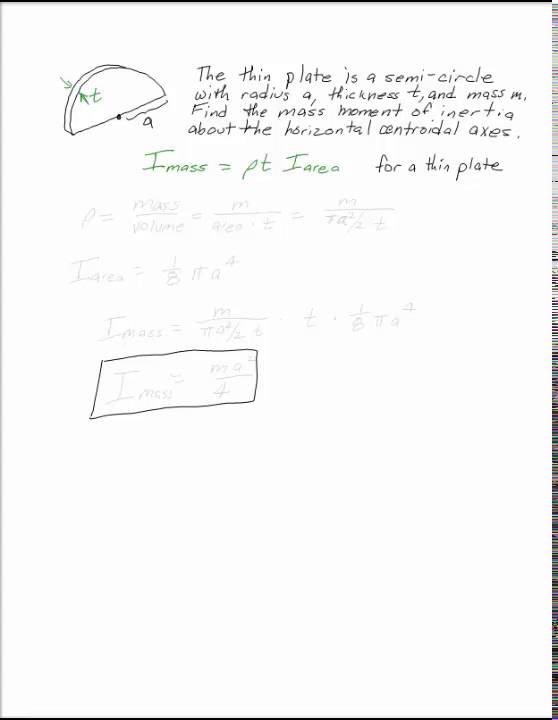 The thin plate is a semi-circle
with radius a, thickness t, and mass m.
Find the mass moment of inertia
about the horizontal centroidal axes.
t
a
I mass = ρt I area for a thin plate
ρ = mass/volume = m/(area · t) = m/(πa²/2 t)
I area = 1/8 πa⁴
I mass = m/(πa²/2 t) · t · 1/8 πa⁴
I mass = ma²/4